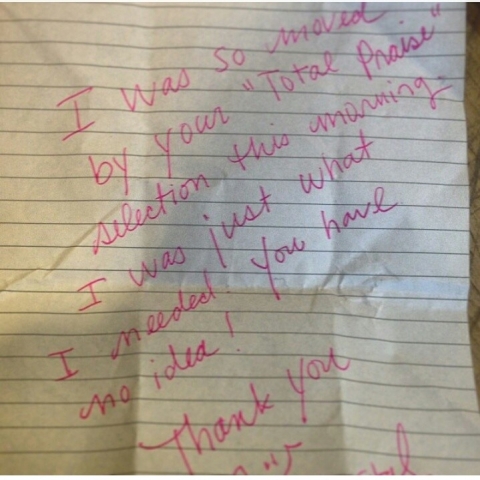 I was so moved
by your "Total Praise"
selection this morning.
I was just what
I needed! You have
no idea!
Thank You